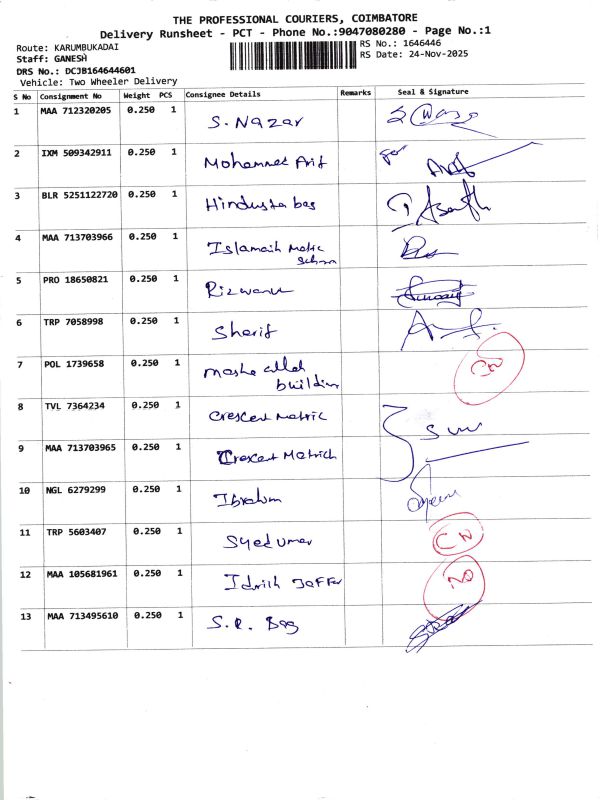 THE PROFESSIONAL COURIERS, COIMBATORE
Delivery Runsheet - PCT - Phone No.:9047080280 - Page No.:1
Route: KARUMBUKADAI
RS No.: 1646446
Staff: GANESH
RS Date: 24-Nov-2025
DRS No.: DCJB164644601
Vehicle: Two Wheeler Delivery
S No Consignment No Weight PCS Consignee Details Remarks Seal & Signature
1 MAA 712320205 0.250 1 S. Nazar
2 IXM 509342911 0.250 1 Mohammed Arif
3 BLR 5251122720 0.250 1 Hindusta bag
4 MAA 713703966 0.250 1 Islamaih Matric
5 PRO 18650821 0.250 1 Rizwana
6 TRP 7058998 0.250 1 Sharif
7 POL 1739658 0.250 1 Masha allah
building
CN
8 TVL 7364234 0.250 1 Crescent Matric
9 MAA 713703965 0.250 1 Crescent Matrich
10 NGL 6279299 0.250 1 Ibrahim
11 TRP 5603407 0.250 1 Syed umar CN
12 MAA 105681961 0.250 1 Idrish Jaffer
13 MAA 713495610 0.250 1 S.R. Bag